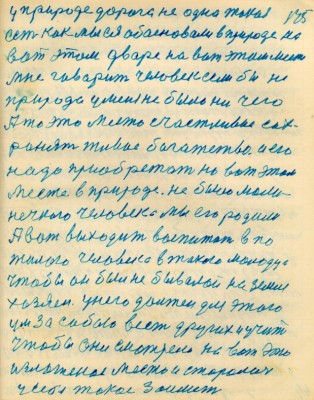 у природе дорога не одна такая 175
есть как мы ся обосновали в природе на
вот этом дворе на вот этом месте
мне говарит человек если бы не
природа у меня не было ни чего
А то это место счастливае сах-
ранят живое багатство. и его
надо приобретат но вот этом
месте в природе. не было мало-
нечкого человека мы его родили
А вот выходит воспитат в по
жилого человека в такого молодца
чтобы он был не бывалой на земли
хазяен. у него должен для этого
ум За сабою вест других и учит
чтобы они смотрели на вот это
место и старалис
у себя такое Заимет